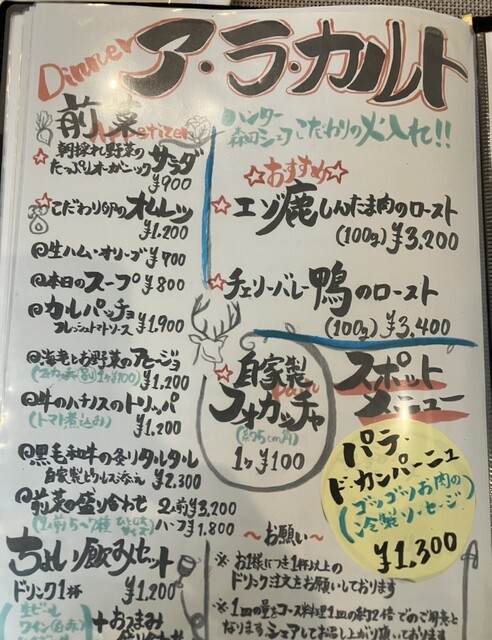 Dinner
ア・ラ・カルト
前菜
Appetizer
☆朝採れ野菜の
たっぷりオーガニックサラダ
¥900
☆こだわり卵のオムレツ
¥1.200
◎生ハム・オリーブ ¥700
◎本日のスープ ¥800
◎カルパッチョ
フレッシュトマトソース ¥1.900
◎海老とお野菜のアヒージョ
¥1.200
◎牛のハチノスのトリッパ
(トマト煮込み) ¥1.200
◎黒毛和牛の炙りタルタル
自家製ピクルス添え ¥2.300
◎前菜の盛り合わせ 2人前¥3,200
(1人前5~7種 ひとくちサイズ) ハーフ¥1.800
ちょい飲みセット
ドリンク1杯 ¥1,200
生ビール
ワイン(白・赤)
+おつまみ
ハンター
森のシェフこだわりの火入れ!!
☆おすすめ☆
☆エゾ鹿しんたま肉のロースト
(100g) ¥3,200
☆チェリーバレー鴨のロースト
(100g) ¥3,400
☆自家製
フォカッチャ
(約5cm角)
1ヶ¥100
スポット
メニュー
パテ・
ド・カンパーニュ
(ゴツゴツお肉の
冷製ソーセージ)
¥1,300
~お願い~
※お1様につき1杯以上の
ドリンク注文をお願いしております
※1皿の量をコース料理1皿の約2倍でのご用意と
なります。シェアしてお召し上がり頂いております